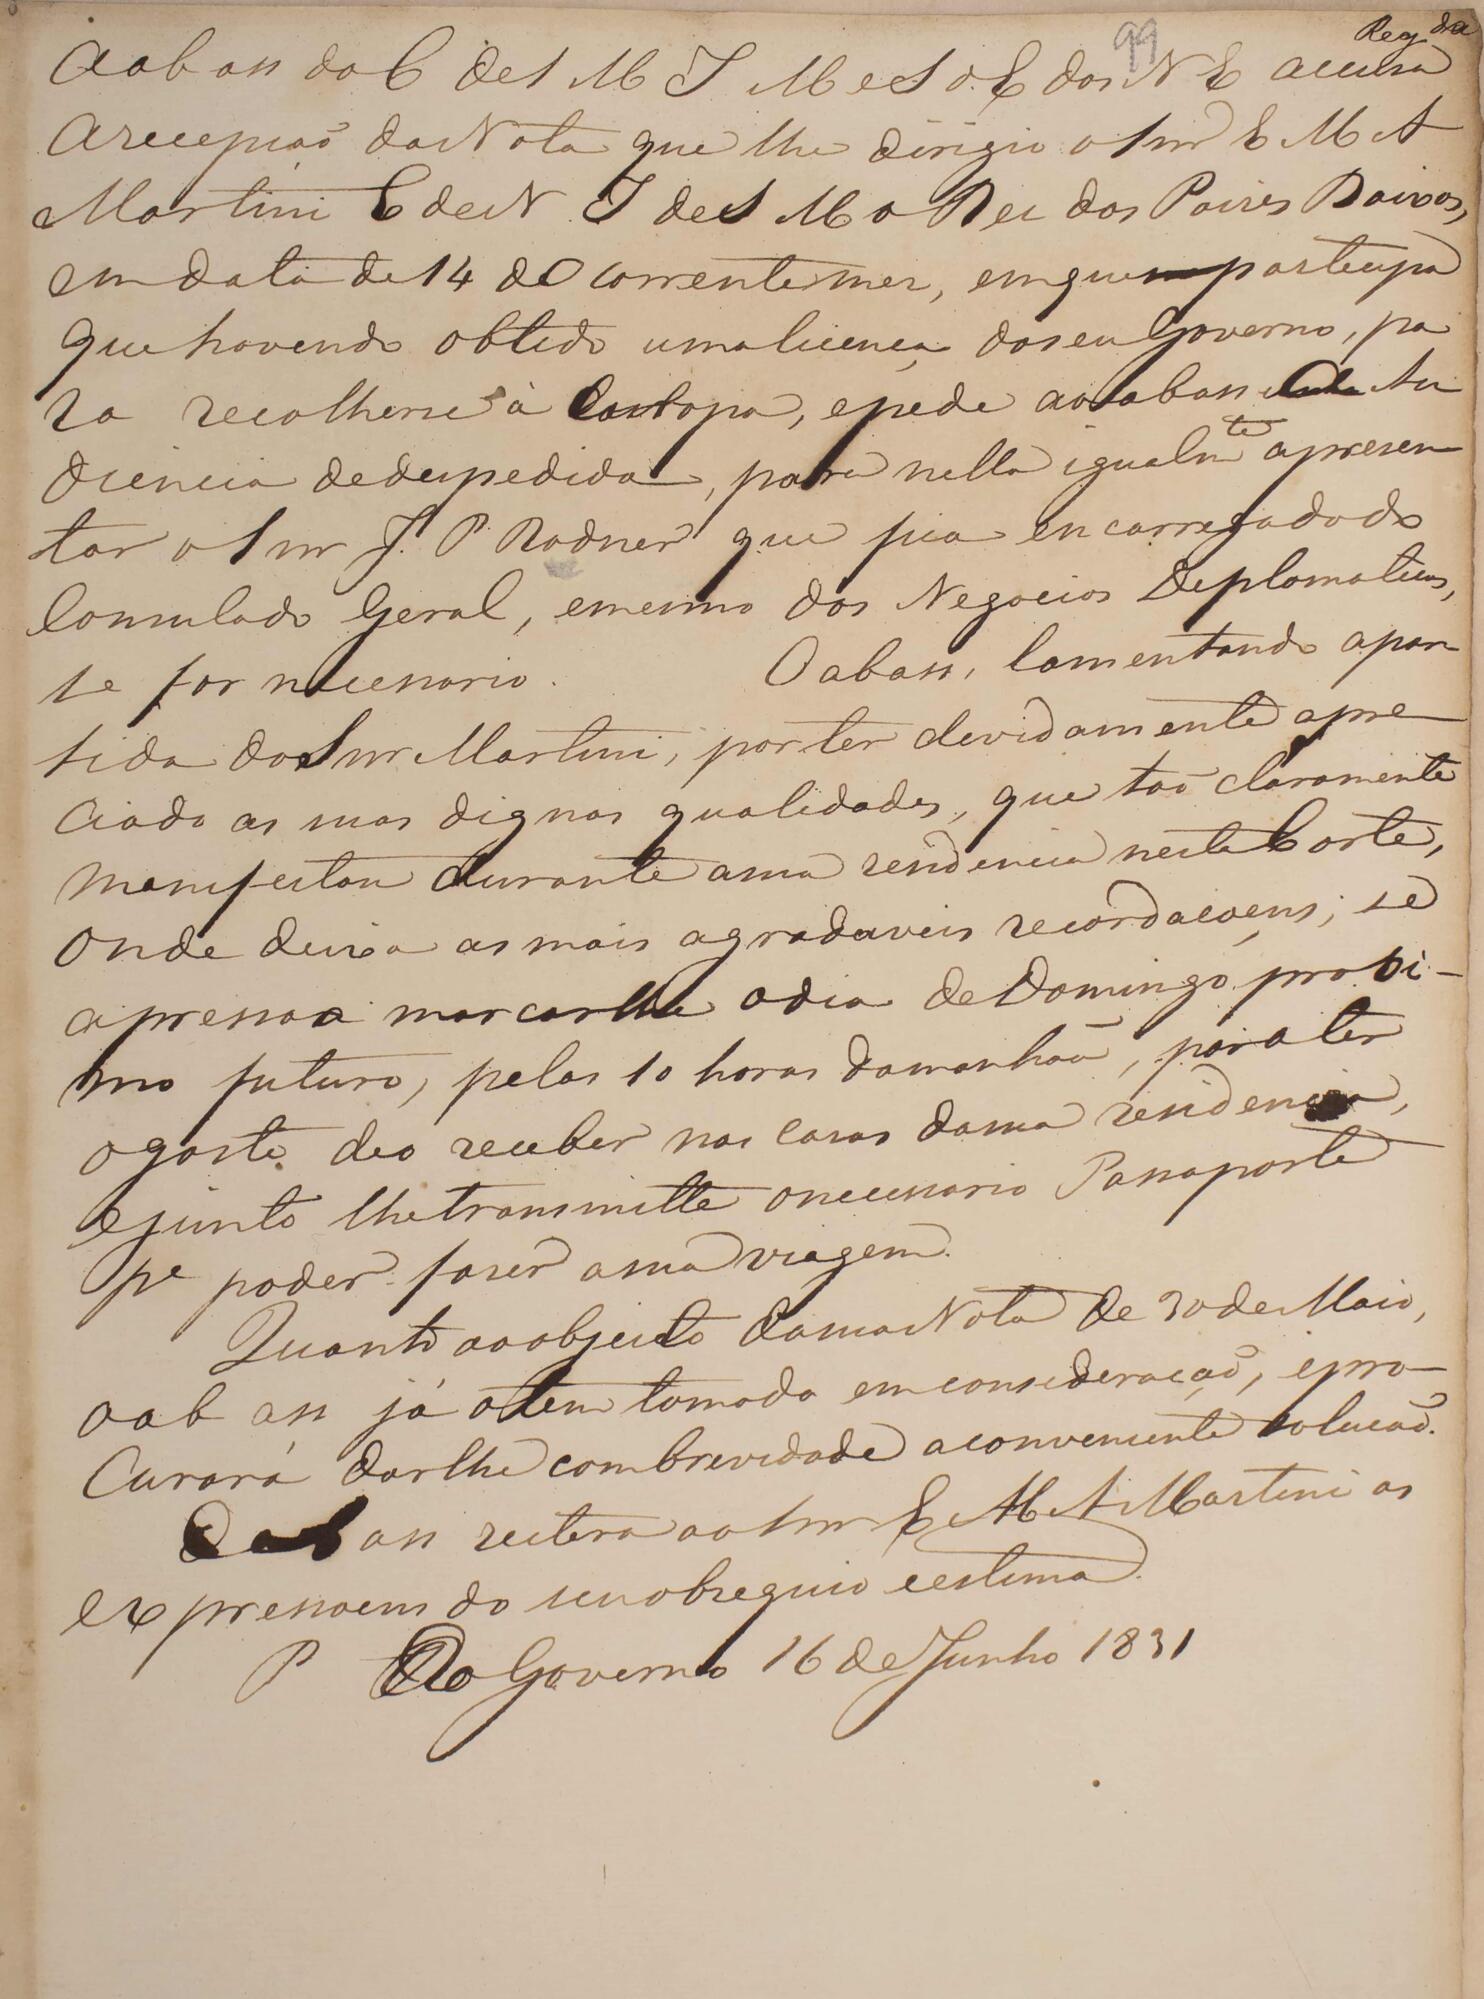 Reg.da
99
O ab ass do C de S M I M e S d'E dos N E accusa
a recepção da Nota que lhe dirigio o Snr E M A
Martini E de N I de S M o Rei dos Paises Baixos,
em data de 14 do corrente mez, em que participa
que havendo obtido uma licença do seu Governo, pa
ra recolherse à Europa, e pede ao abass Au
diencia de despedida, para nella igualmte apresen
tar o Snr J. P. Rodner que fica encarregado do
Consulado Geral, e mesmo dos Negocios Deplomaticos,
se for necessario. O abass, lamentando a par
tida do Snr Martini, por ter devidamente apre
ciado as suas dignas qualidades, que tão claramente
manifestou durante a sua residencia nesta Corte,
onde deixa as mais agradaveis recordaçoens; se
apressa a marcarlhe o dia de Domingo proxi-
mo futuro, pelas 10 horas da manhãa, para ter
o gosto de o receber nas casas da sua residencia,
e junto lhe transmitte o necessario Passaporte
pa poder faser a sua viagem.
Quanto ao objecto da sua Nota de 30 de Maio,
o ab ass já o tem tomado em consideração, e pro-
curará darlhe com brevidade a conveniente solução.
O ab ass reitera ao Snr E M A Martini as
expressoens do seu obsequio e estima.
P do Governo 16 de Junho 1831